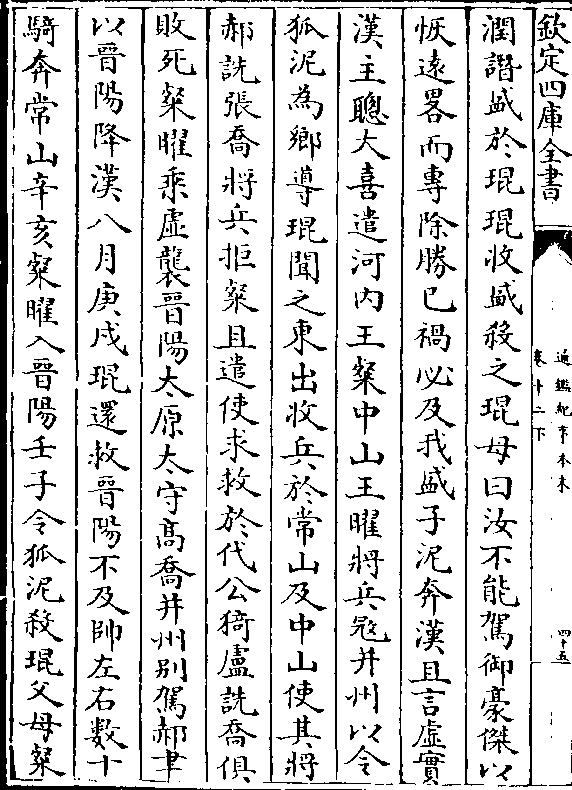 欽定四庫全書
通鑑紀事本末
卷十二下
四十五
潤譖盛於琨琨收盛殺之琨母曰汝不能駕御豪傑以
恢遠畧而專除勝已禍必及我盛子泥奔漢且言虛實
漢主聰大喜遣河内王粲中山王曜將兵寇并州以令
狐泥為鄉導琨聞之東出收兵於常山及中山使其將
郝詵張喬將兵拒粲且遣使求救於代公猗盧詵喬俱
敗死粲曜乘虛襲晉陽太原太守髙喬并州别駕郝聿
以晉陽降漢八月庚戌琨還救晉陽不及帥左右數十
騎奔常山辛亥粲曜入晉陽壬子令狐泥殺琨父母粲